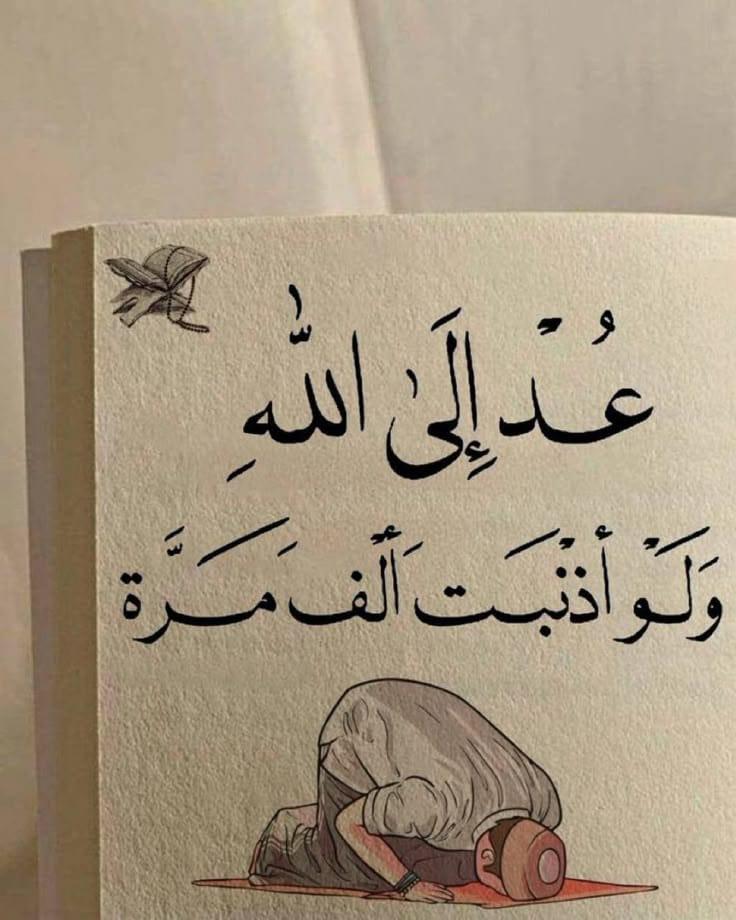 عُدْ إِلَىٰ اللّٰهِ
وَلَوْ أَذْنَبَتَ أَلْفَ مَرَّة